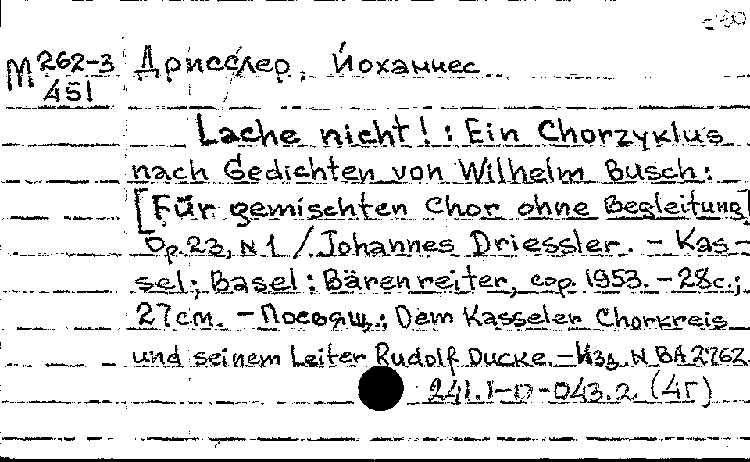 M 262-3
451
Дрисслер, Йоханнес
Lache nicht! : Ein Chorzyklus
nach Gedichten von Wilhelm Busch:
[Für gemischten Chor ohne Begleitung]
Op. 23, N 1 / Johannes Driessler. - Kas-
sel; Basel : Bärenreiter, cop. 1953. - 28c.;
27cm. - Посвящ.: Dem Kasseler Chorkreis
und seinem Leiter Rudolf Ducke. - Изд. N BA 2762
241.1-0-043.2. (4Г)